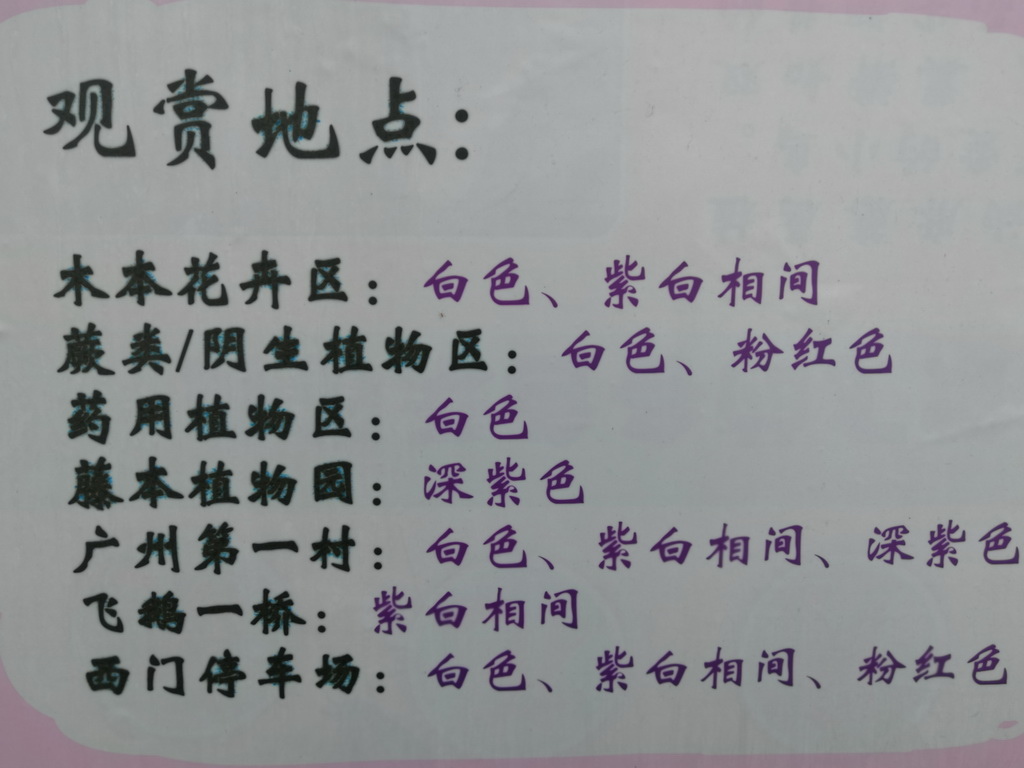 观赏地点：
木本花卉区：白色、紫白相间
蕨类/阴生植物区：白色、粉红色
药用植物区：白色
藤本植物园：深紫色
广州第一村：白色、紫白相间、深紫色
飞鹅一桥：紫白相间
西门停车场：白色、紫白相间、粉红色